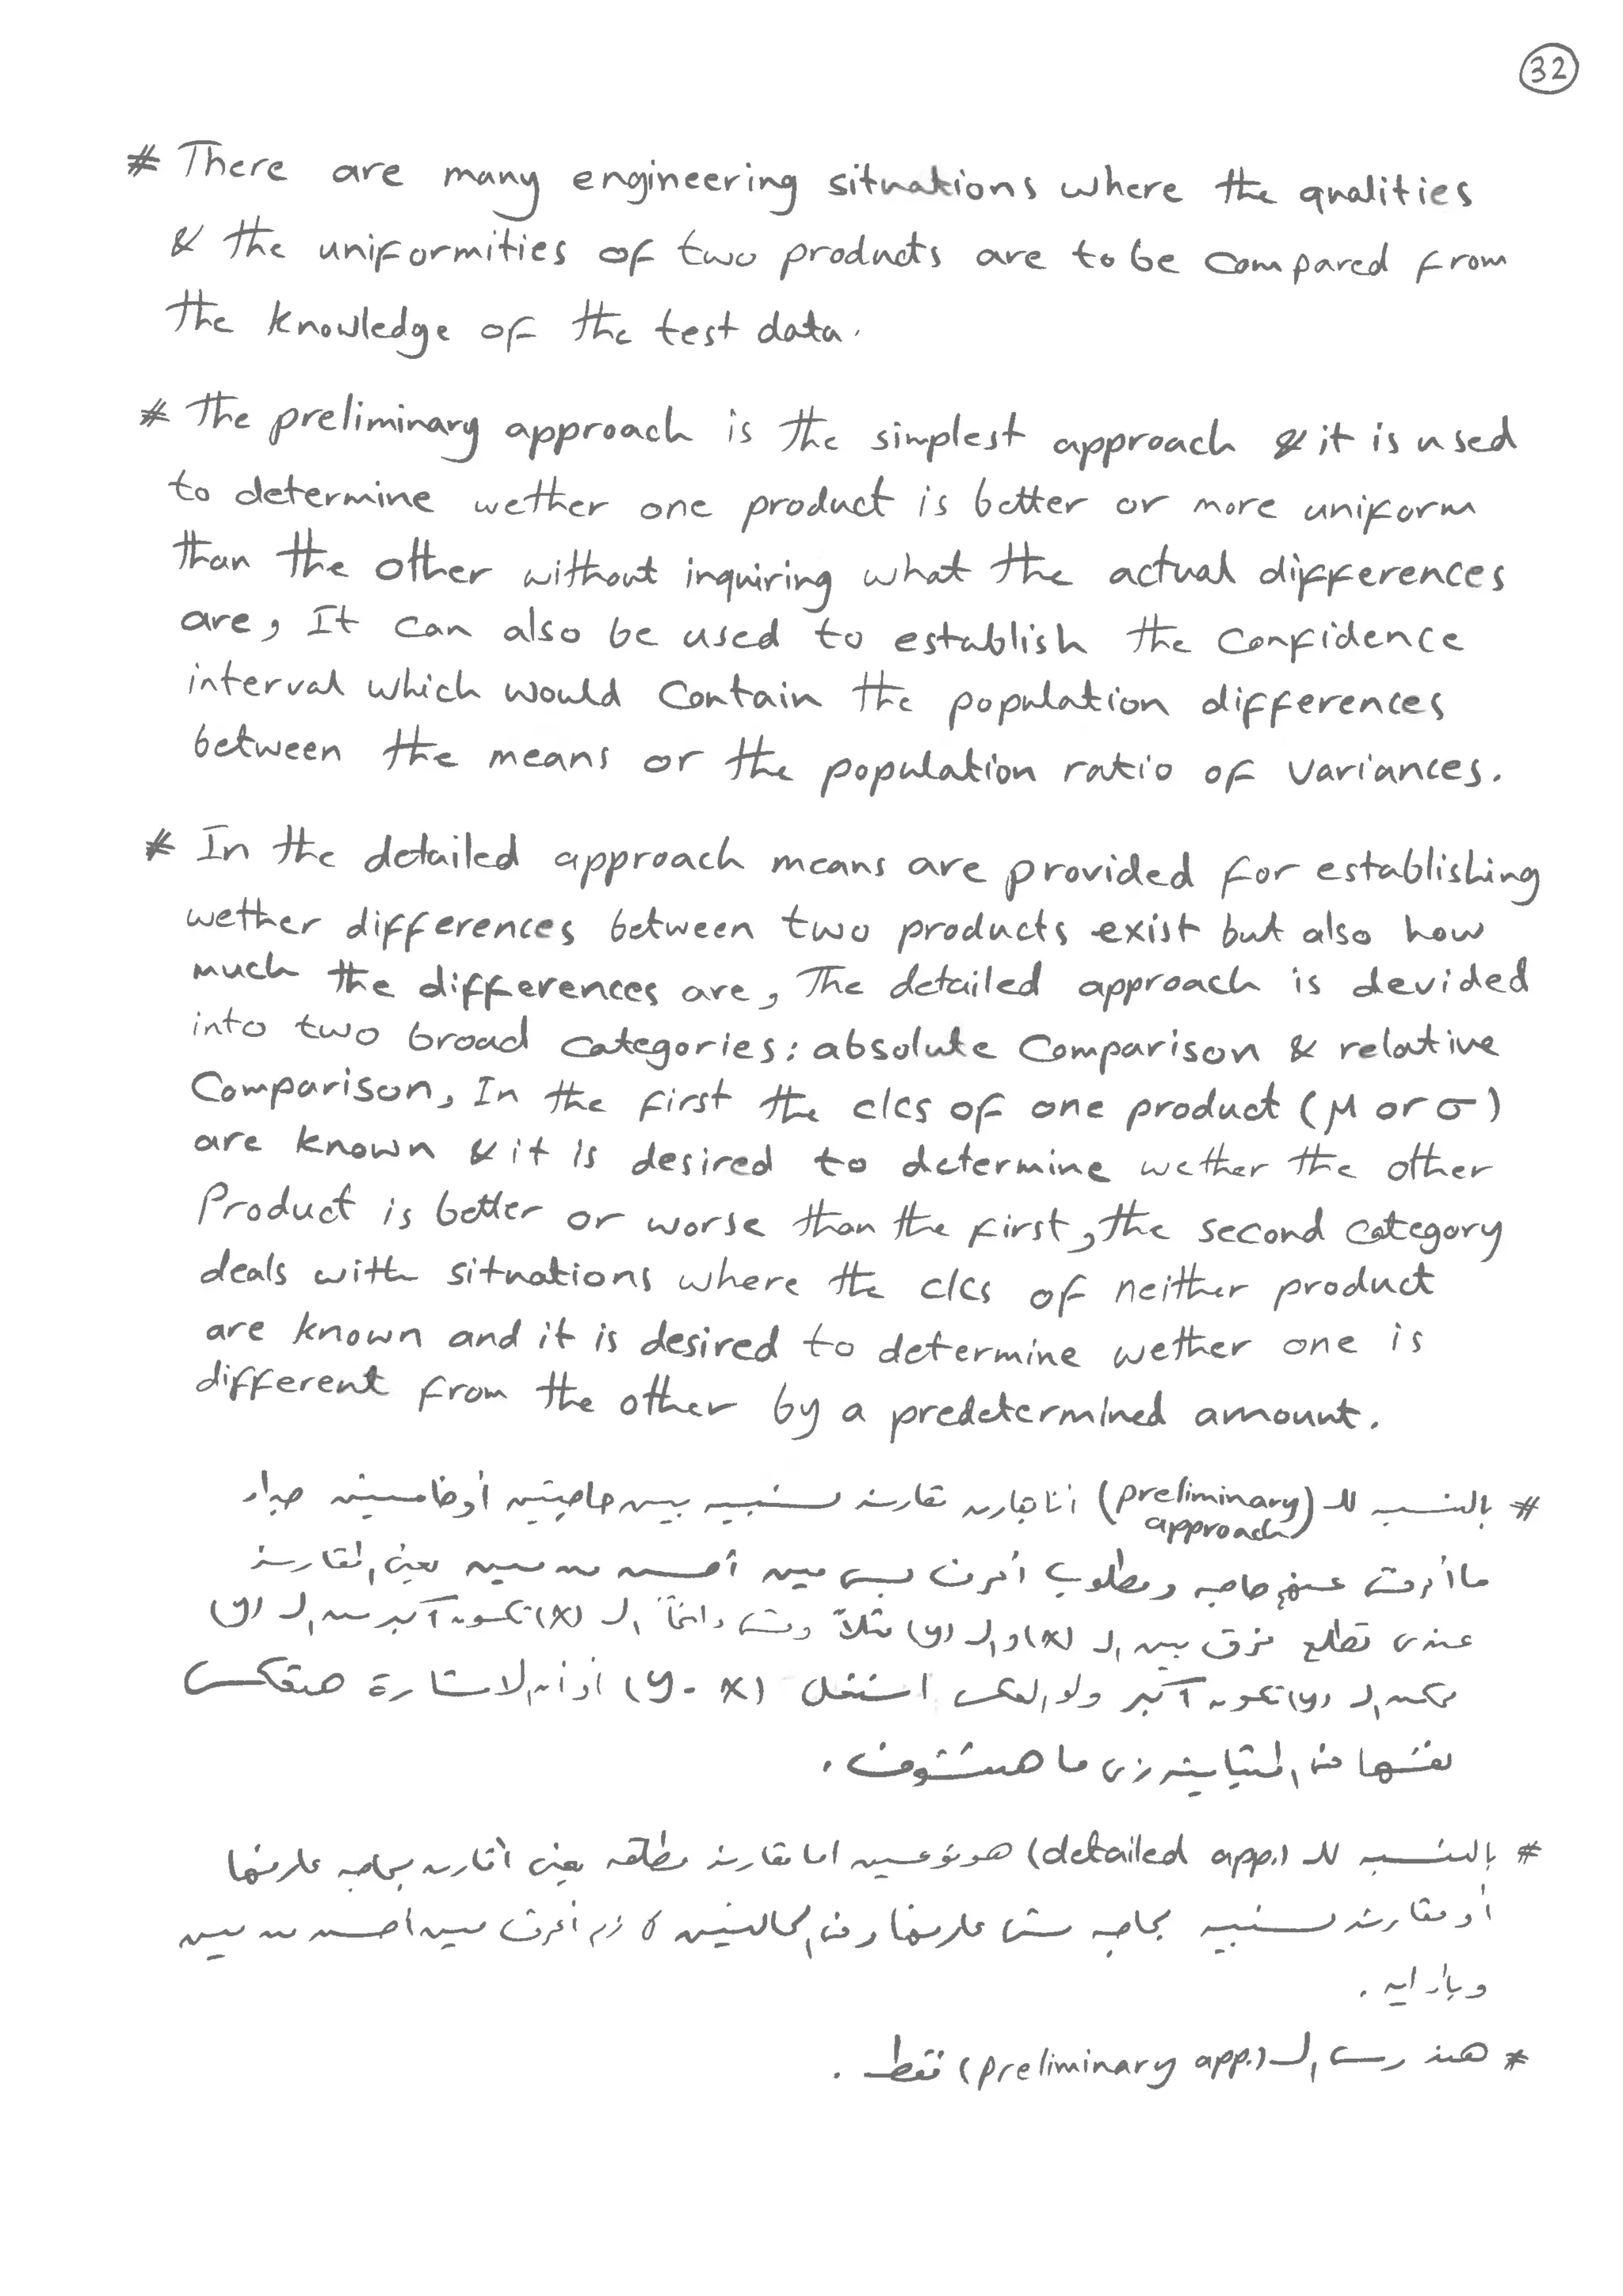 32
* There are many engineering situations where the qualities
& the uniformities of two products are to be compared from
the knowledge of the test data.
* The preliminary approach is the simplest approach & it is used
to determine wether one product is better or more uniform
than the other without inquiring what the actual differences
are, It can also be used to establish the confidence
interval which would contain the population differences
between the means or the population ratio of variances.
* In the detailed approach means are provided for establishing
wether differences between two products exist but also how
much the differences are, The detailed approach is devided
into two broad categories: absolute comparison & relative
comparison, In the first the c/cs of one product (μ or σ)
are known & it is desired to determine wether the other
Product is better or worse than the first, the second category
deals with situations where the c/cs of neither product
are known and it is desired to determine wether one is
different from the other by a predetermined amount.
* بالنسبه لل (preliminary approach) أنا بقارن مقارنه نسبيه بين حاجتين أو
ما أعرفش عنهم حاجه ومطلوب أعرف بس مين أحسن من مين يعنى المقارنه
عندى تطلع فرق بين ال (x) و ال (y) مثلاً ومش دائماً ال (x) تكون أكبر من ال (y)
ممكن ال (y) تكون أكبر ولو العكس اشتغل (y - x) أو أن الاشارة هتعكس
نفسها فى المتباينه زى ما هنشوف .
* بالنسبه لل (detailed app.) هو نوعين اما مقارنه مطلقه يعنى أقارن بحاجه عارفها
أو مقارنه نسبيه بحاجه مش عارفها وفى الحالتين لازم أعرف مين أحسن من مين
وبأد ايه .
* هندرس ال (preliminary app.) فقط .